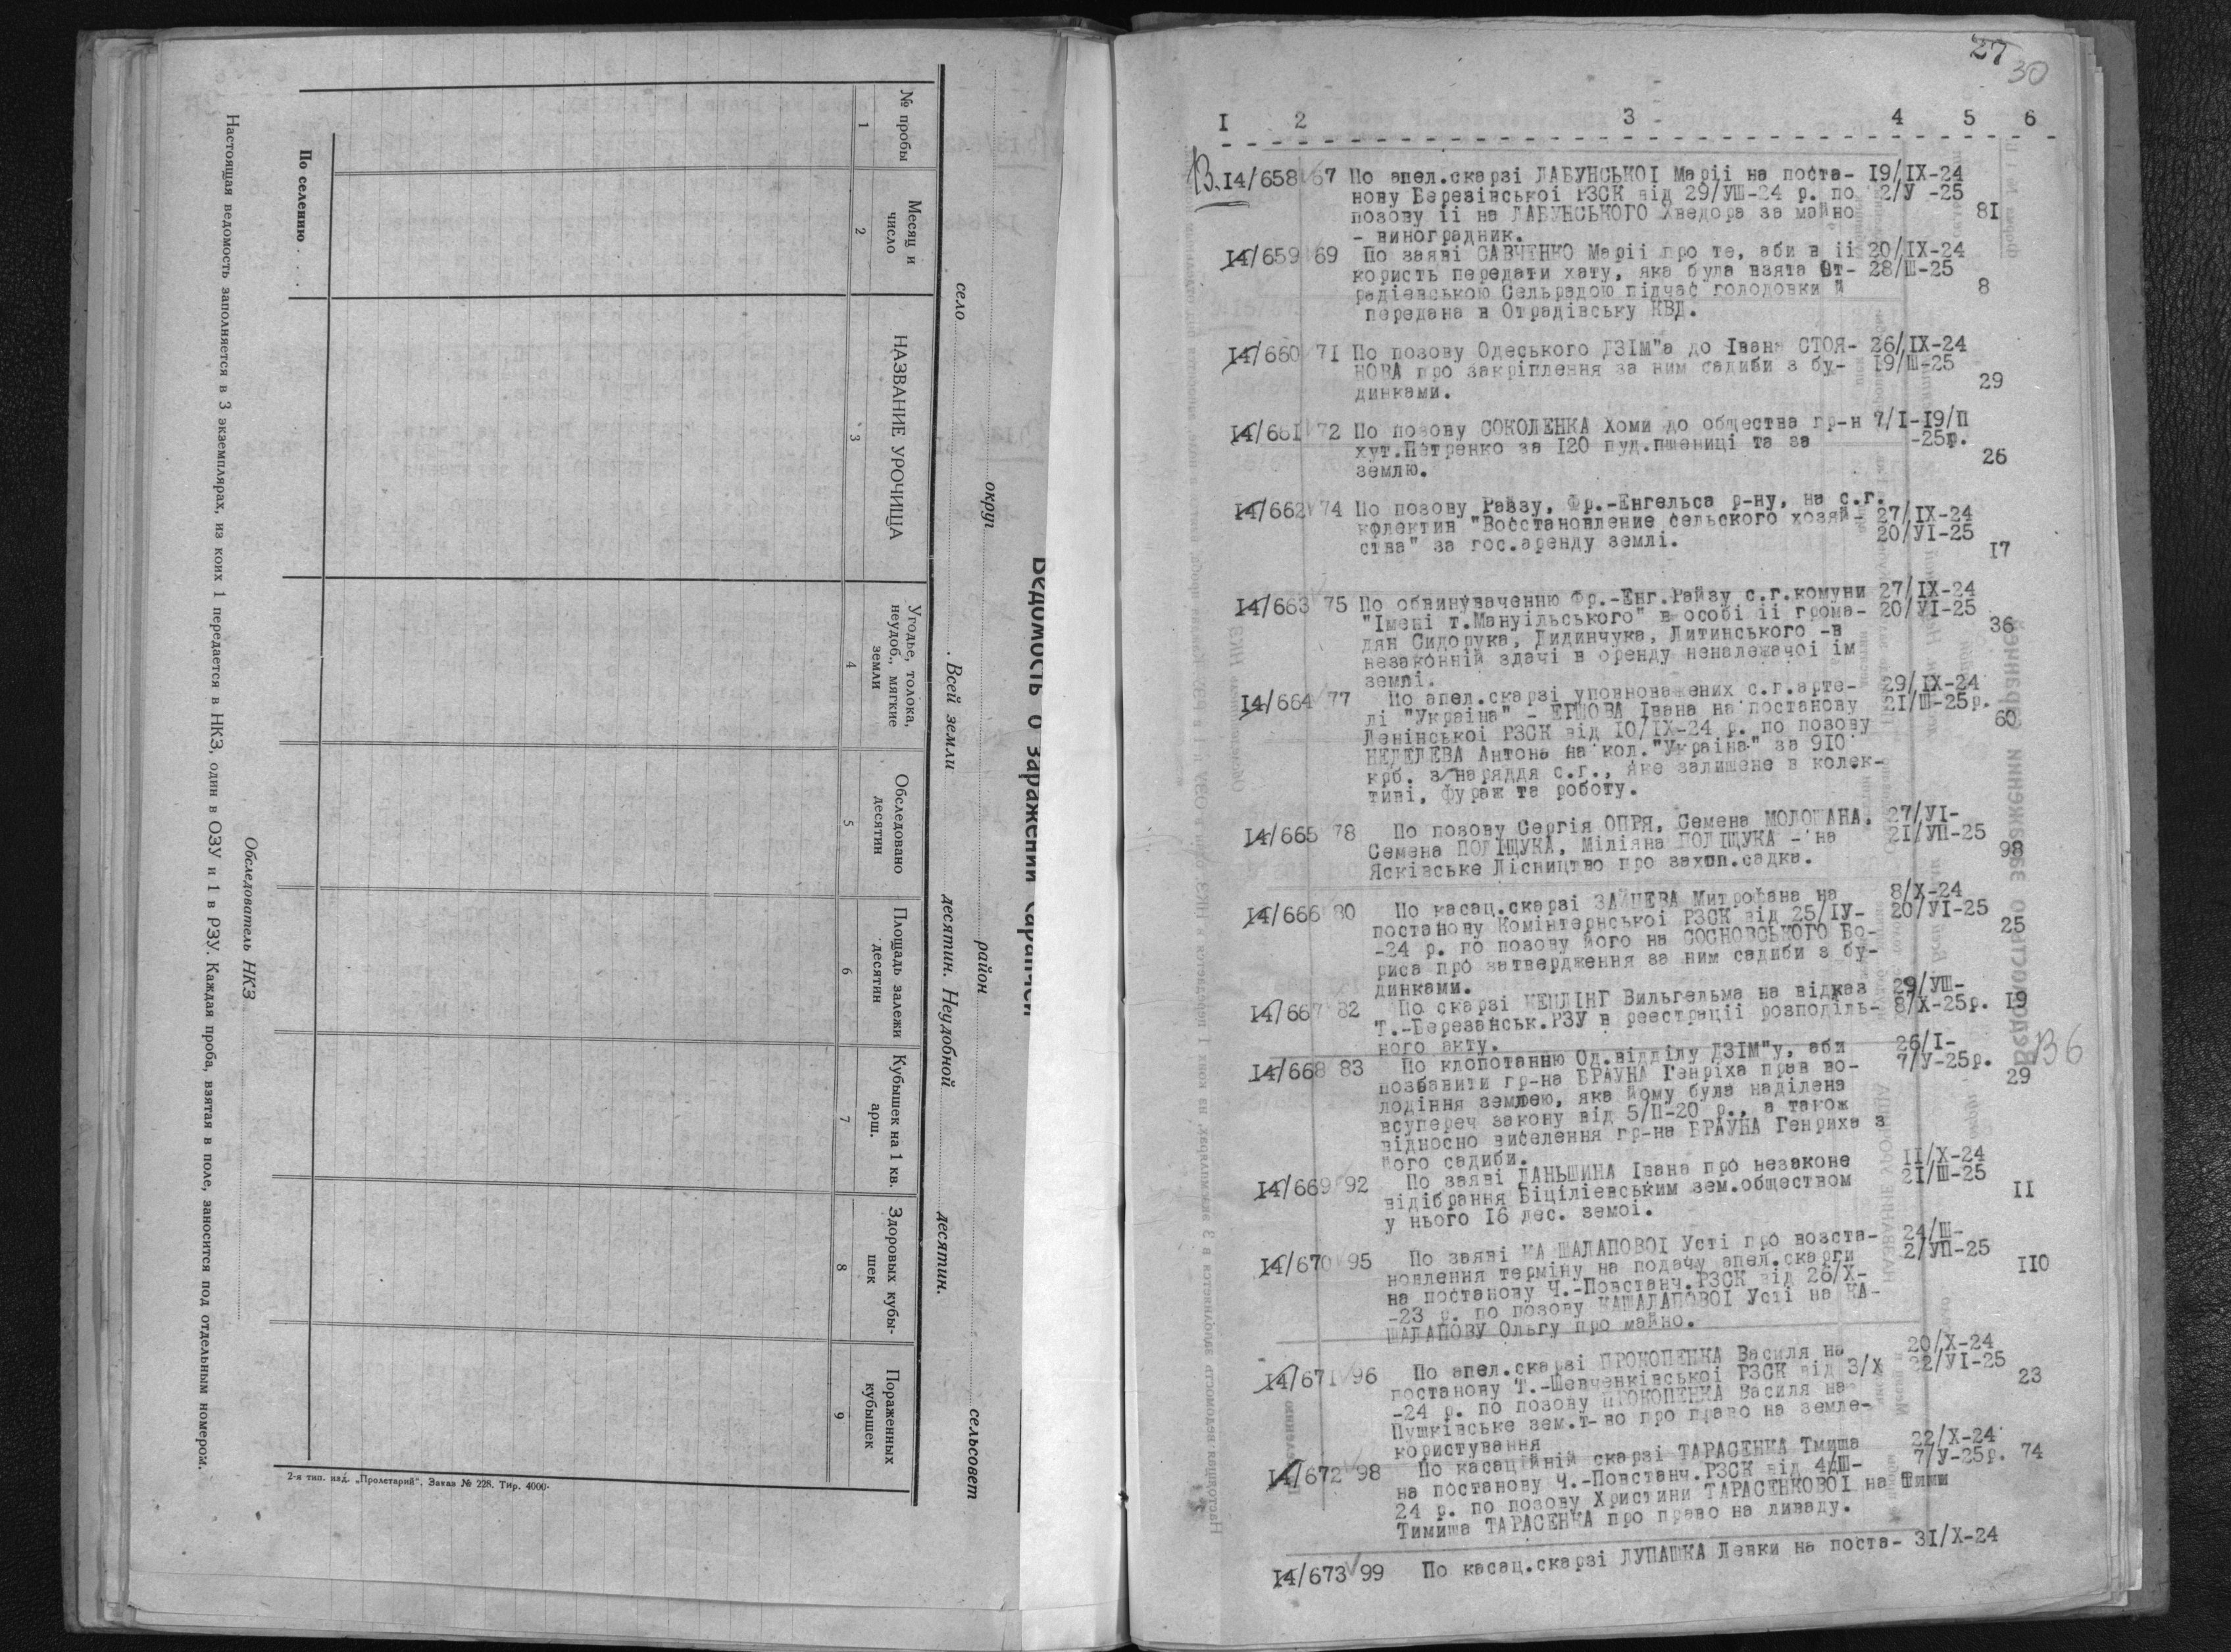 Ведомость о заражении саранчей
округ район сельсовет
село Всей земли десятин. Неудобной десятин.
№ пробы
Месяц и число
НАЗВАНИЕ УРОЧИЩА
Угодье, толока, неудоб., мягкие земли
Обследовано десятин
Площадь залежи десятин
Кубышек на 1 кв. арш.
Здоровых кубышек
Пораженных кубышек
1 2 3 4 5 6 7 8 9
По селению . . .
Обследователь НКЗ
Настоящая ведомость заполняется в 3 экземплярах, из коих 1 передается в НКЗ, один в ОЗУ и 1 в РЗУ. Каждая проба, взятая в поле, заносится под отдельным номером.
2-я тип. изд. „Пролетарий“. Заказ № 228. Тир. 4000·
27
30
I 2 3 4 5 6
В. I4/658 67 По апел.скарзі ЛАБУНСЬКОІ Маріі на поста- I9/IX-24
нову Березівськоі РЗСК від 29/УШ-24 р. по 2/У -25
позову іі на ЛАБУНСЬКОГО Хведора за майно 8I
- виноградник.
I4/659 69 По заяві САВЧЕНКО Маріі про те, аби в іі 20/IX-24
користь передати хату, яка була взята От- 28/Ш-25
радіевською Сельрадою підчас голодовки й 8
передана в Отрадівську КВД.
I4/660 7I По позову Одеського ДЗІМ"а до Івана СТОЯ- 26/IX-24
НОВА про закріплення за ним садиби з бу- I9/Ш-25
динками. 29
I4/66I 72 По позову СОКОЛЕНКА Хоми до общества гр-н 7/I-I9/П
хут.Петренко за I20 пуд.пшениці та за -25р.
землю. 26
I4/662 74 По позову Райзу, Фр.-Енгельса р-ну, на с.г.
колектив "Восстановление сельского хозяй- 27/IX-24
ства" за гос.аренду землі. 20/УI-25
I7
I4/663 75 По обвинуваченню Фр.-Енг.Райзу с.г.комуни 27/IX-24
"Імені т.Мануільського" в особі іі грома- 20/УI-25
дян Сидорука, Дидинчука, Литинського -в 36
незаконній здачі в оренду неналежачоі ім
землі.
I4/664 77 По апел.скарзі уповноважених с.г.арте- 29/IX-24
лі "Украіна" - ЕРШОВА Івана на постанову 2I/Ш-25р.
Ленінськоі РЗСК від I0/IX-24 р. по позову 60
НЕДЕЛЕВА Антона на кол."Украіна" за 9I0
крб. з/наряддя с.г., яке залишене в колек-
тиві, фураж та роботу.
I4/665 78 По позову Сергія ОПРЯ, Семена МОЛОШАНА, 27/УI-
Семена ПОЛІЩУКА, Міліяна ПОЛІЩУКА - на 2I/УП-25
Ясківське Лісництво про захоп.садка. 98
I4/666 80 По касац.скарзі ЗАЙЦЕВА Митрофана на 8/X-24
постанову Комінтернськоі РЗСК від 25/IУ- 20/УI-25
-24 р. по позову його на СОСНОВСЬКОГО Бо- 25
риса про затвердження за ним садиби з бу-
динками.
I4/667 82 По скарзі КЕНЛІНГ Вильгельма на відказ 29/УШ-
Т.-Березанськ.РЗУ в реестраціі розподіль- 8/X-25р. I9
ного акту.
I4/668 83 По клопотанню Од.відділу ДЗІМ"у, аби 26/I-
позбавити гр-на БРАУНА Генріха прав во- 7/У-25р.
лодіння землею, яка йому була наділена 29
всупереч закону від 5/П-20 р., а також
відносно виселення гр-на БРАУНА Генриха з
його садиби.
В6
I4/669 92 По заяві ДАНЬШИНА Івана про незаконе II/X-24
відібрання Біціліевським зем.обществом 2I/Ш-25
у нього I6 дес. земоі. II
I4/670 95 По заяві КАШАЛАПОВОІ Усті про возста- 24/Ш-
новлення терміну на подачу апел.скарги 2/УП-25
на постанову Ч.-Повстанч.РЗСК від 26/X- II0
-23 р. по позову КАШАЛАПОВОІ Усті на КА-
ШАЛАПОВУ Ольгу про майно.
I4/67I 96 По апел.скарзі ПРОКОПЕНКА Василя на 20/X-24
постанову Т.-Шевченківськоі РЗСК від 3/X 22/УI-25
-24 р. по позову ПРОКОПЕНКА Василя на 23
Пушківське зем.т-во про право на земле-
користування
I4/672 98 По касаційній скарзі ТАРАСЕНКА Тмиша 22/X-24
на постанову Ч.-Повстанч.РЗСК від 4/Ш- 7/У-25р. 74
24 р. по позову Христини ТАРАСЕНКОВОІ на
Тимиша ТАРАСЕНКА про право на ливаду.
I4/673 99 По касац.скарзі ЛУПАШКА Левки на поста- 3I/X-24